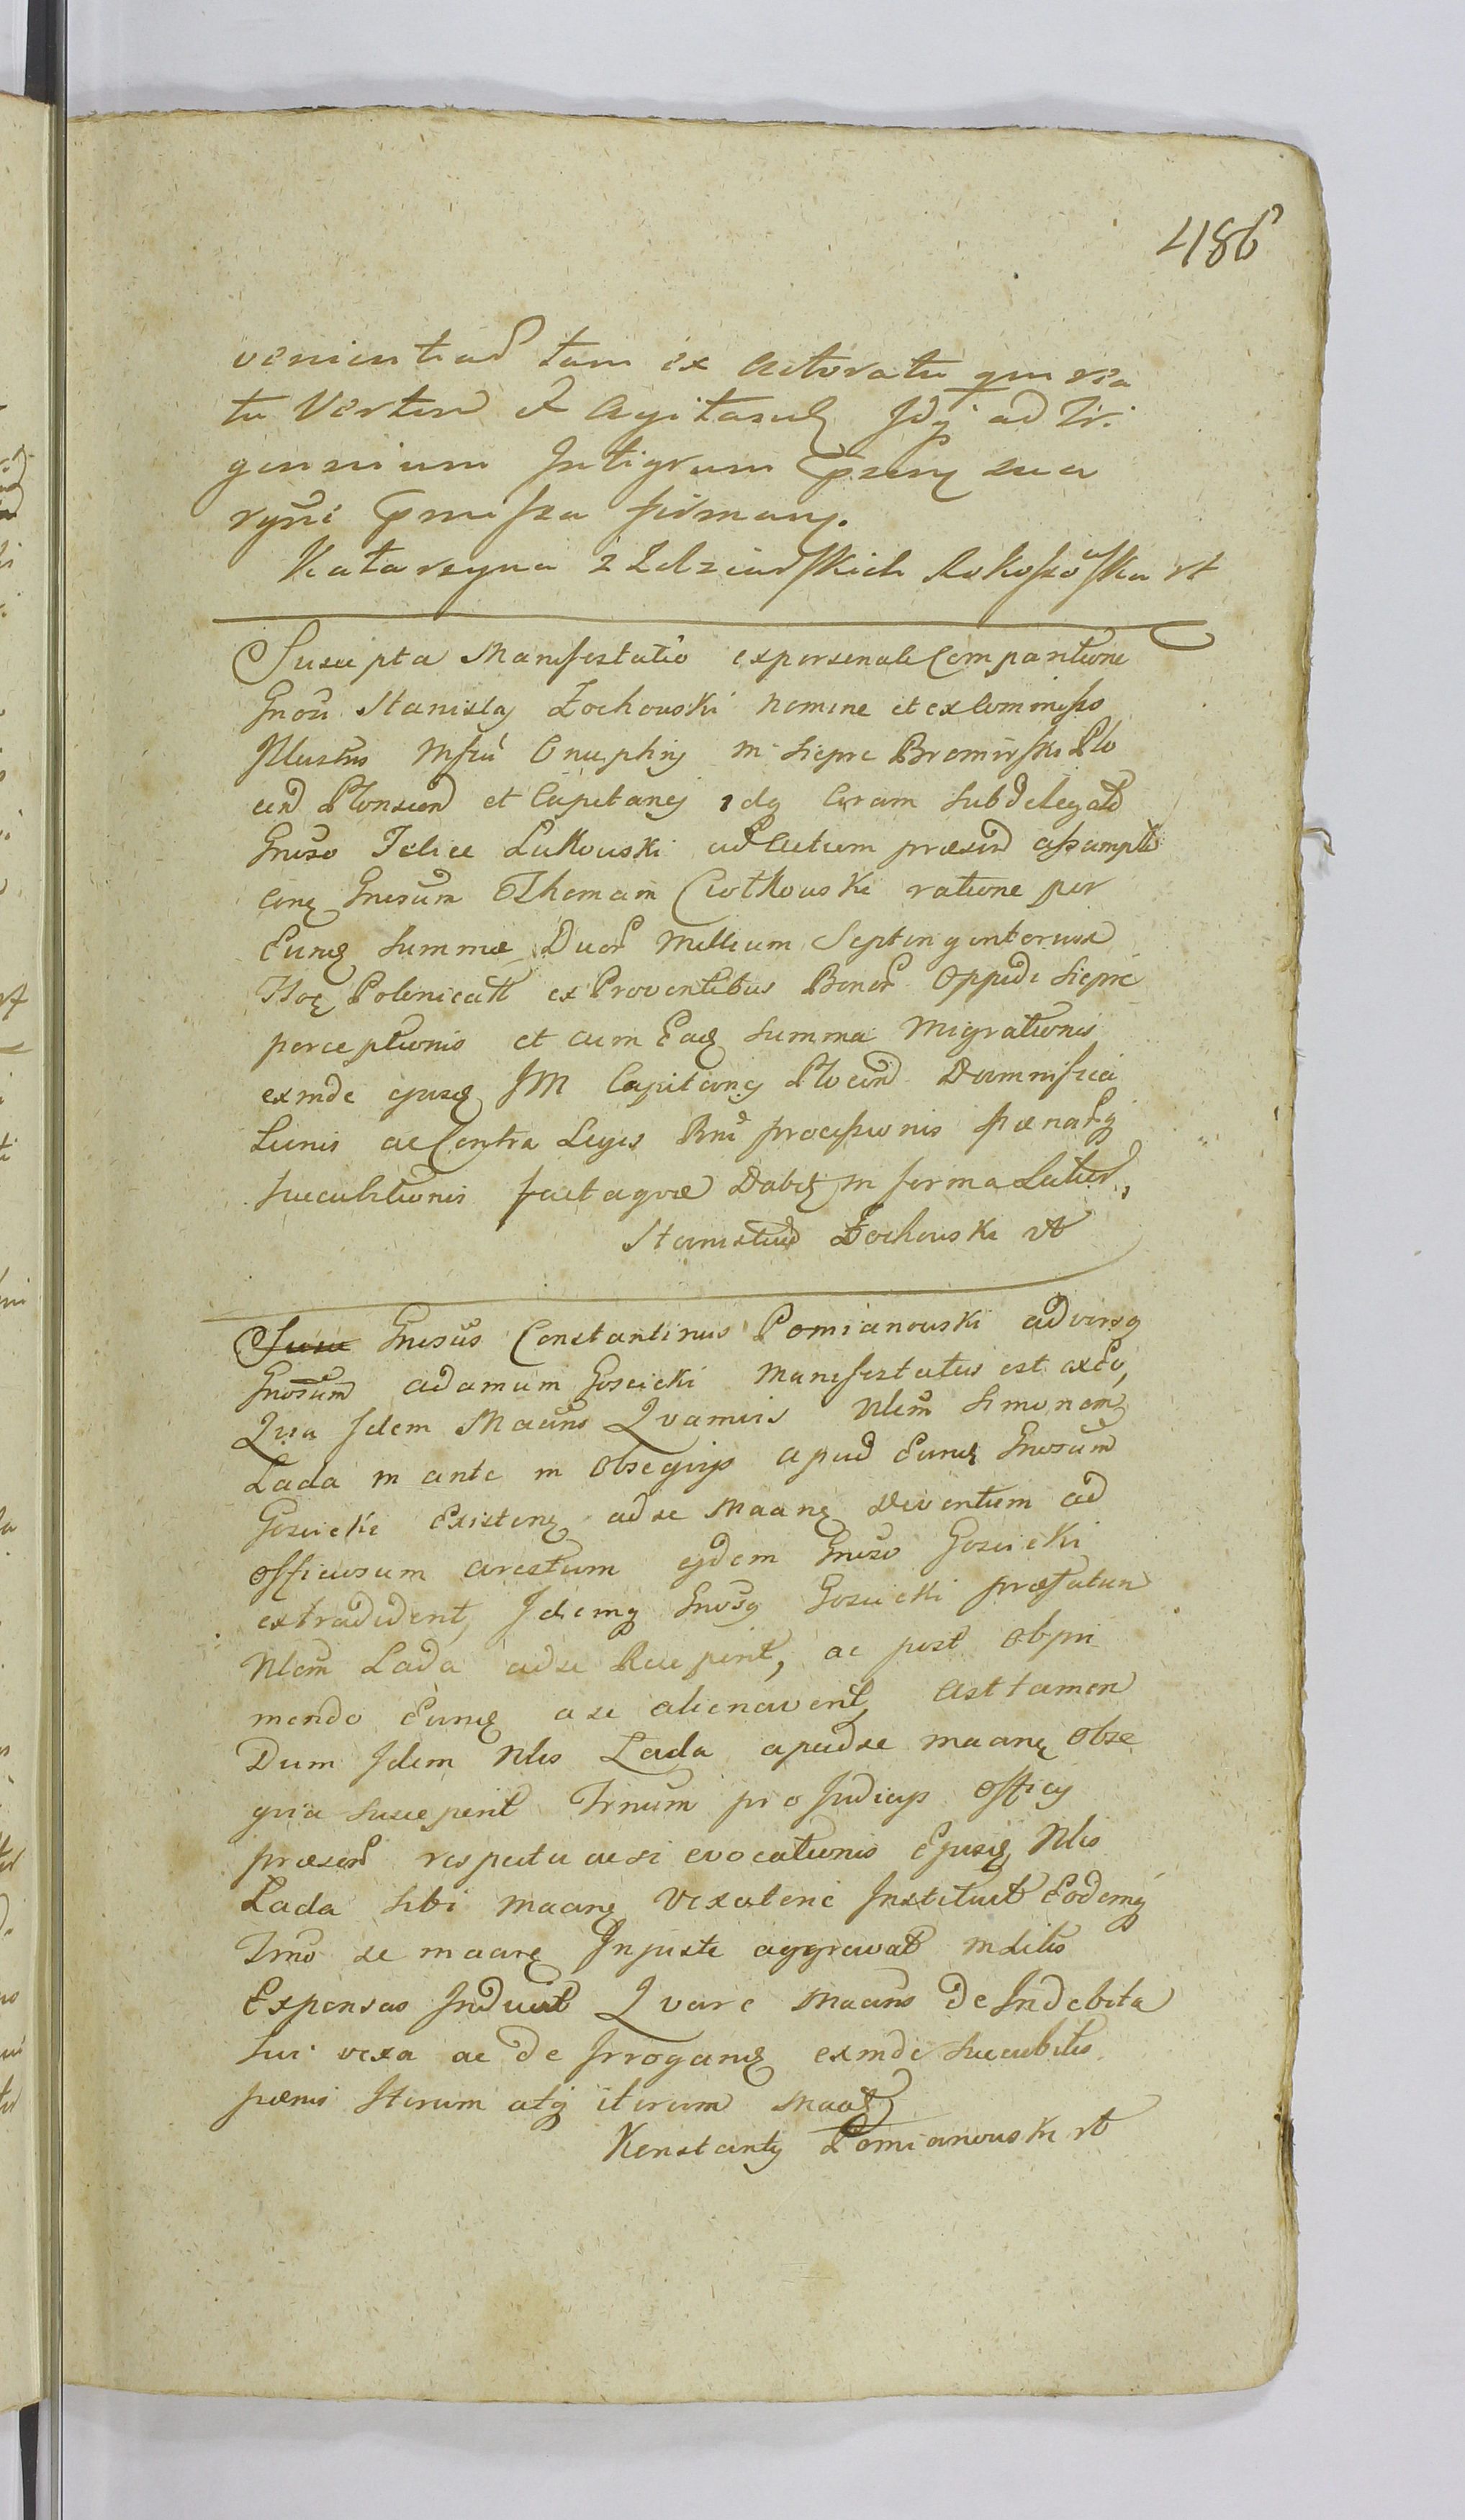 486
venientiad tam ex Actoratu querea
tu Verten et Agitasuls Idq ad Tri
gennium Integrum
firmans.
Katarzyna z Zdziarskich Rokoszowska rt
Suscepta Manifestatio ex personali Comparitione
Gnosi Stanislaj Żochowski nomine et ex Commisso
Illustris Mfci Onuphrij in Sieprc Bromirski Plo
cen Plonscen et Capitanej idq Coram subdelegato
Gnoso Felice Lutkowski ad Actum præsen assumpto
cong Gnosum Thomam Ciotkowski ratione per
Eund Summæ Duor Millium Septingentorum
Flor Polonicall ex Proventibus Bonor Oppidi Sieprc
perceptionis et cum Ead Summa Migrationis
exinde ejusd IM Capitanej Plocen Damnifica
tionis ac Contra Leges Rni processionis pænarq
succubitionis factaque Dabit in forma Latiori
Stanisław Żochowski rt
Gnosus Constantinus Pomianowski adversq
Gnosum Adamum Goscicki Manifestatus est ex Eo,
Quia Idem Maans Quamvis Nlem Simonem
Lada in ante in Obsequijs apud Eund Gnosum
Goscicki Existen ad se Maanq Deventum ad
officiosum arestum ejdem Gnoso Goscicki
extradiderit, Idemq Gnosq Goscicki præfatum
Nlem Lada ad se Receperit, ac post obpri
mendo Eund a se alienaverit, Asttamen
Dum Idem Nlis Lada apud se maanq Obse
quia susceperit Trnum pro Judicijs Officij
præsen respectu acsi evocationis Ejusd Nlis
Lada sibi maanq Vexatorie Instituit Eodemq
Trno se maanq Injuste aggravat in Litis
Expensas Induxit Quare Maans de Indebita
sui vexa ac de Irrogand exinde succubitis
pænis Iterum atq iterum Maat
Konstanty Pomianowski rt